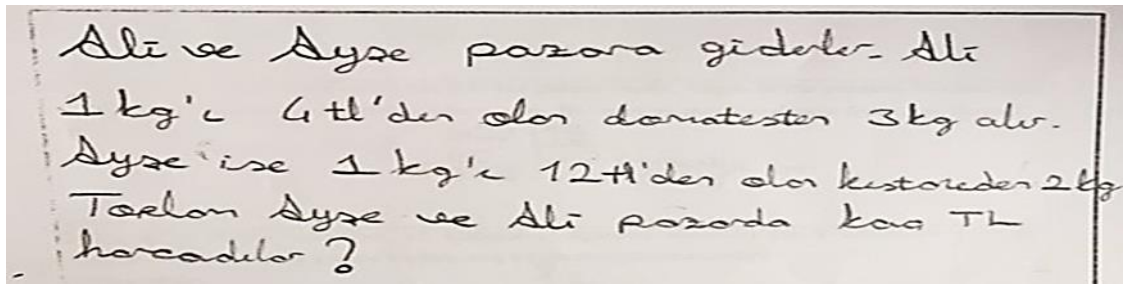 Ali ve Ayşe pazara giderler. Ali
1 kg'ı 4 tl'den olan domatesten 3 kg alır.
Ayşe ise 1 kg'ı 12 tl'den olan kestaneden 2 kg
Toplam Ayşe ve Ali pazarda kaç TL
harcadılar?